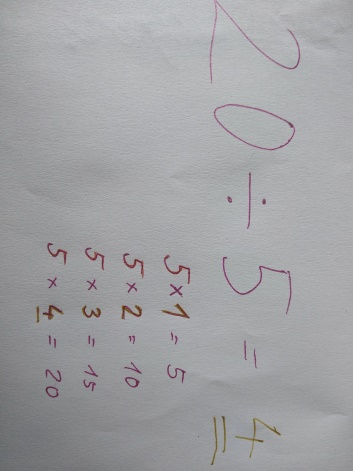 20 ÷ 5 = 4
5 × 1 = 5
5 × 2 = 10
5 × 3 = 15
5 × 4 = 20